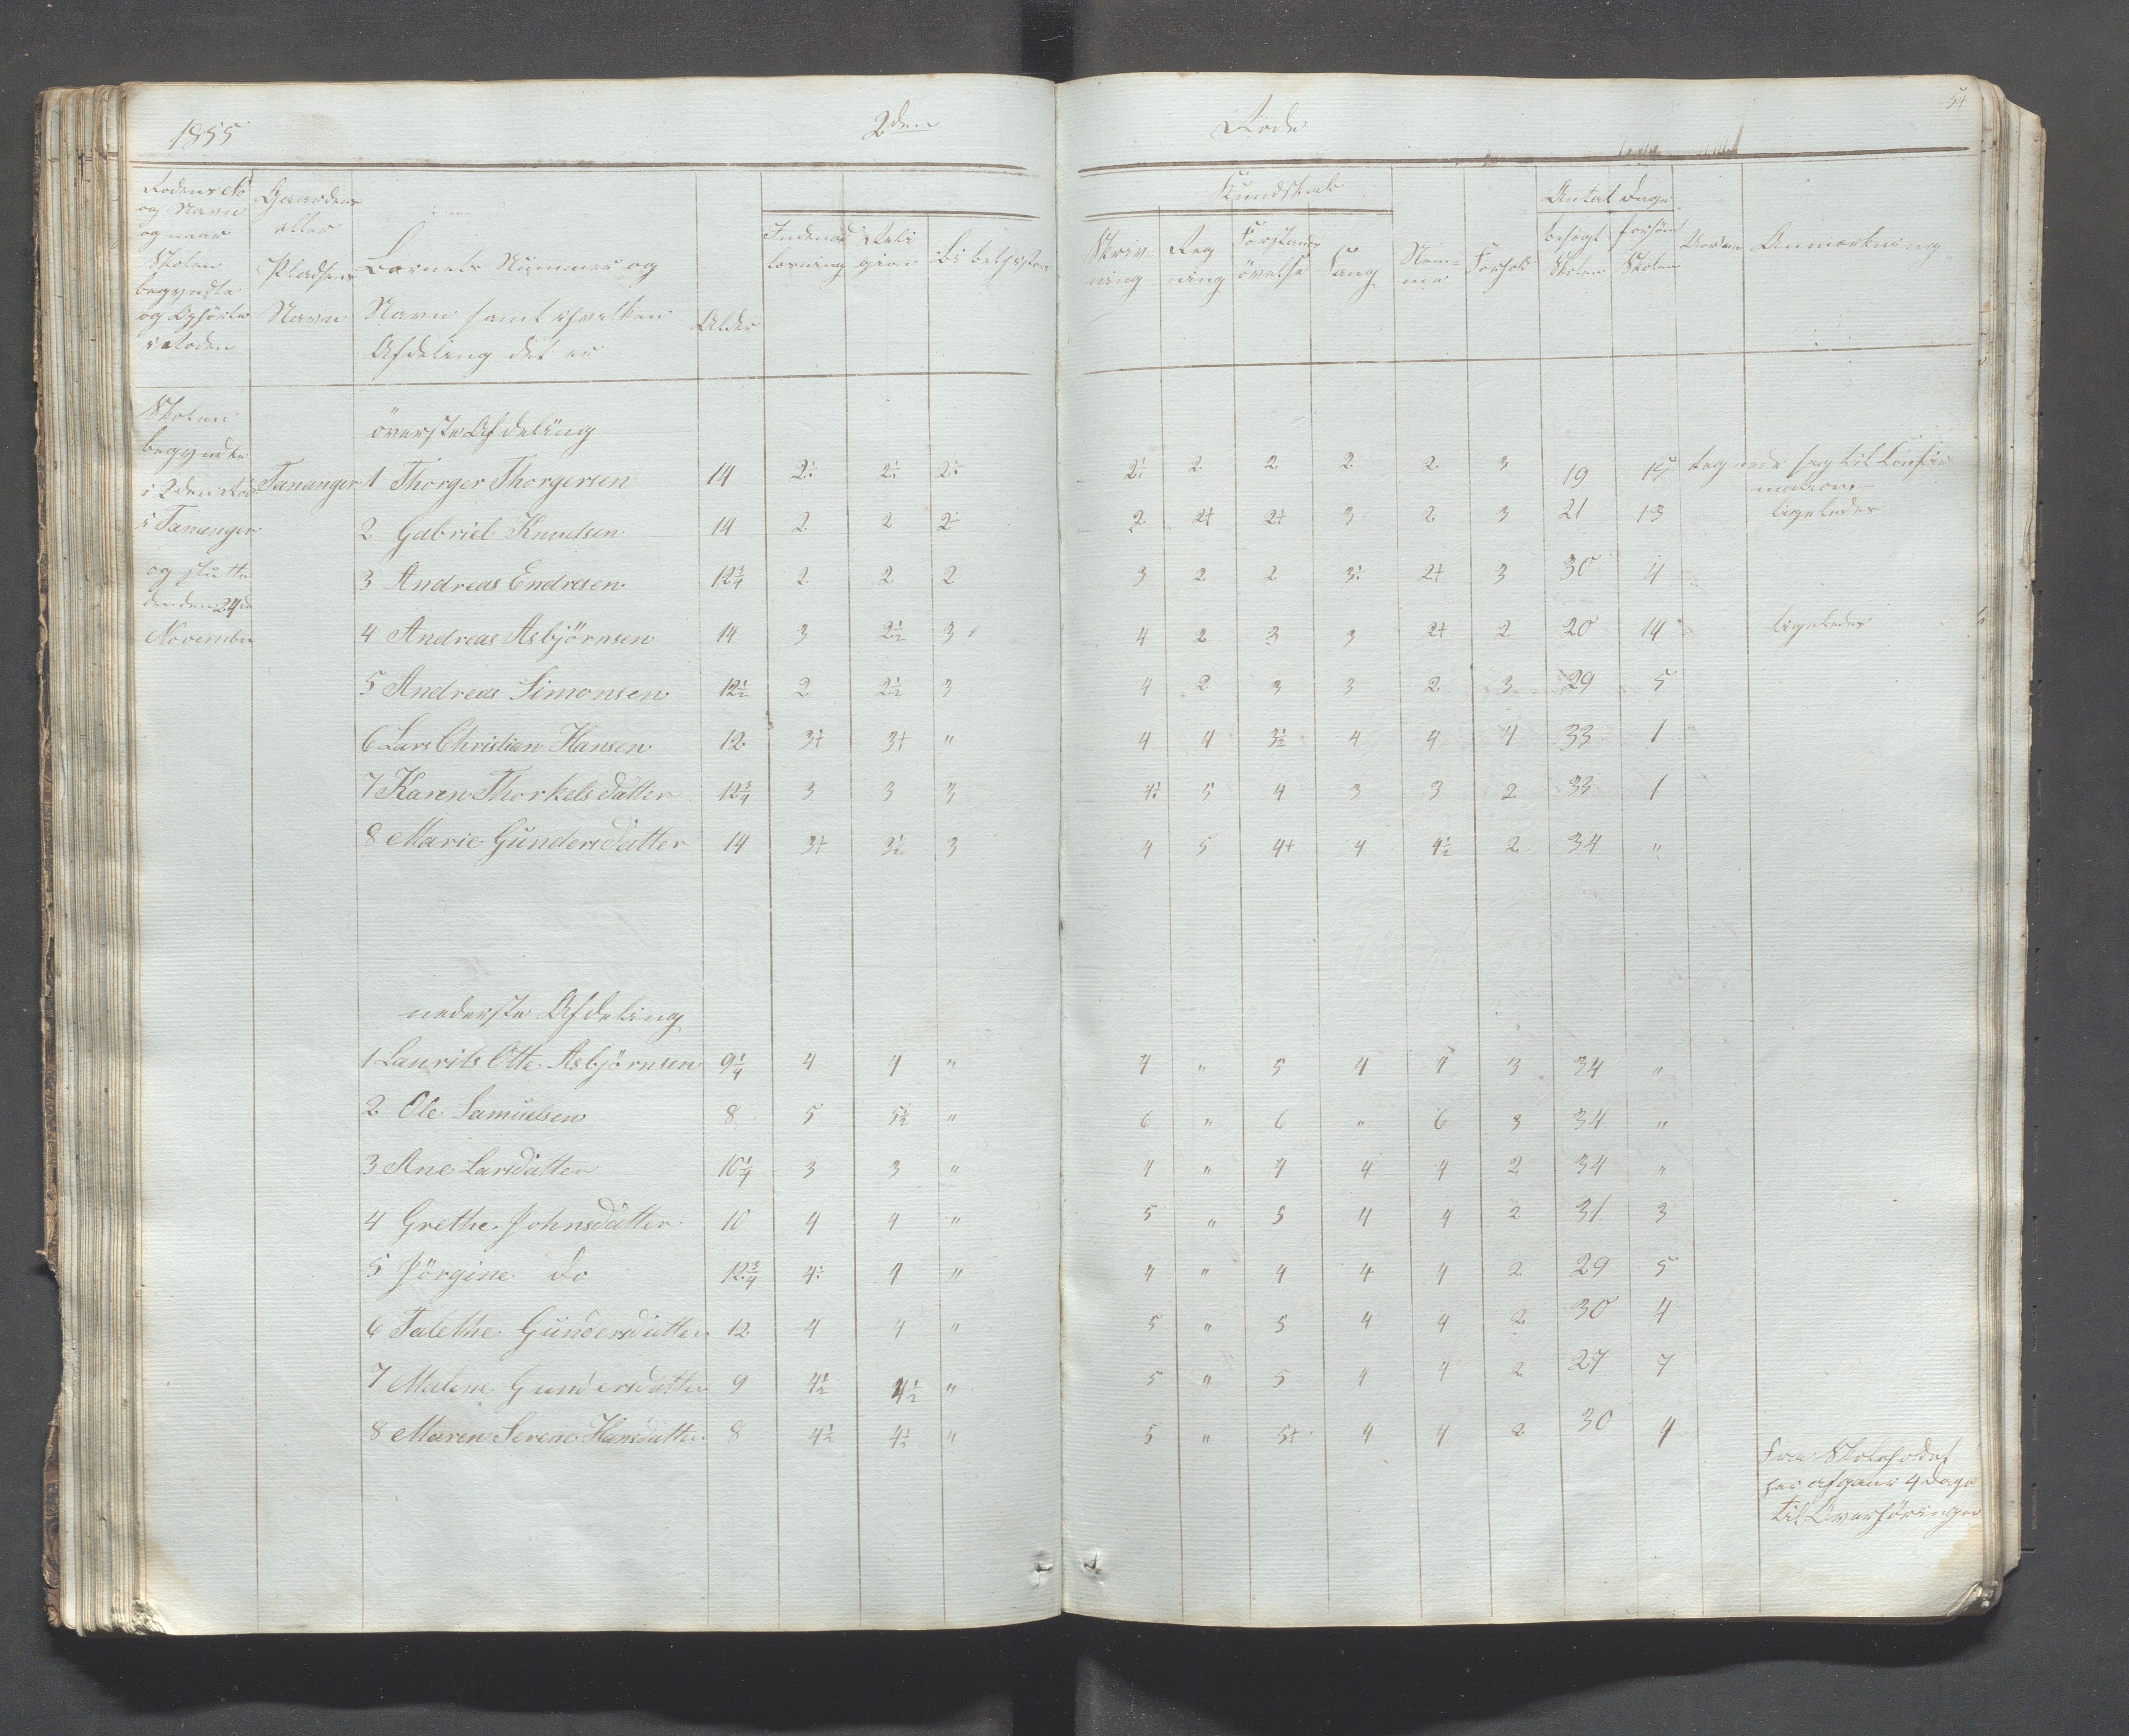 1855
2den Rode
54
Rodens No og Navn og naar Skolen begyndte og Ophørte i Roden
Gaardens eller Pladsens Navn
Barnets Nummer og Navn samt i hvilken Afdeling det er
Alder
Indenad Læsning
Religion
Bibelhistorie
Kundskab
Skrivning
Regning
Forstandsövelse
Sang
Nemme
Forhold
Antal Dage
besögt Skolen
forsömt Skolen
Anmærkning
Skolen
begyndte
i 2den Rode
i Tananger
og sluttede
den 24de
November
överste Afdeling
Tananger 1 Thorger Thorgersen 14 2÷ 2÷ 2÷ 2÷ 2 2 2 2 3 19 15 tegnede sig til Confirmation
2 Gabriel Knudsen 14 2 2 2÷ 2 2+ 2+ 3 2 3 21 13 ligeledes
3 Andreas Endresen 12¾ 2 2 2 3 2 2 3÷ 2+ 3 30 4
4 Andreas Asbjörnsen 14 3 2½ 3 4 2 3 3 2+ 2 20 14 ligeledes
5 Andreas Simonsen 12½ 2 2½ 3 4 2 3 3 2 3 29 5
6 Lars Christian Hansen 12 3+ 3+ " 4 4 3½ 4 4 4 33 1
7 Karen Thorkelsdatter 12¾ 3 3 3 4÷ 5 4 3 3 2 33 1
8 Marie Gundersdatter 14 3+ 3½ 3 4 5 4+ 4 4½ 2 34 "
nederste Afdeling
1 Laurits Otte Asbjörnsen 9¼ 4 4 " 4 " 5 4 4 3 34 "
2 Ole Samuelsen 8 5 5½ " 6 " 6 " 6 3 34 "
3 Ane Larsdatter 10¼ 3 3 " 4 " 4 4 4 2 34 "
4 Grethe Johnsdatter 10 4 4 " 5 " 5 4 4 2 31 3
5 Jörgine do 12¾ 4÷ 4 " 4 " 4 4 4 2 29 5
6 Talethe Gundersdatter 12 4 4 " 5 " 5 4 4 2 30 4
7 Malene Gundersdatter 9 4½ 4½ " 5 " 5 4 4 2 27 7
8 Maren Serine Hansdatter 8 4½ 4½ " 5 " 5+ 4 4 2 30 4
Fra Skoleholdet
her afgaar 4 Dage
til Overhöringer